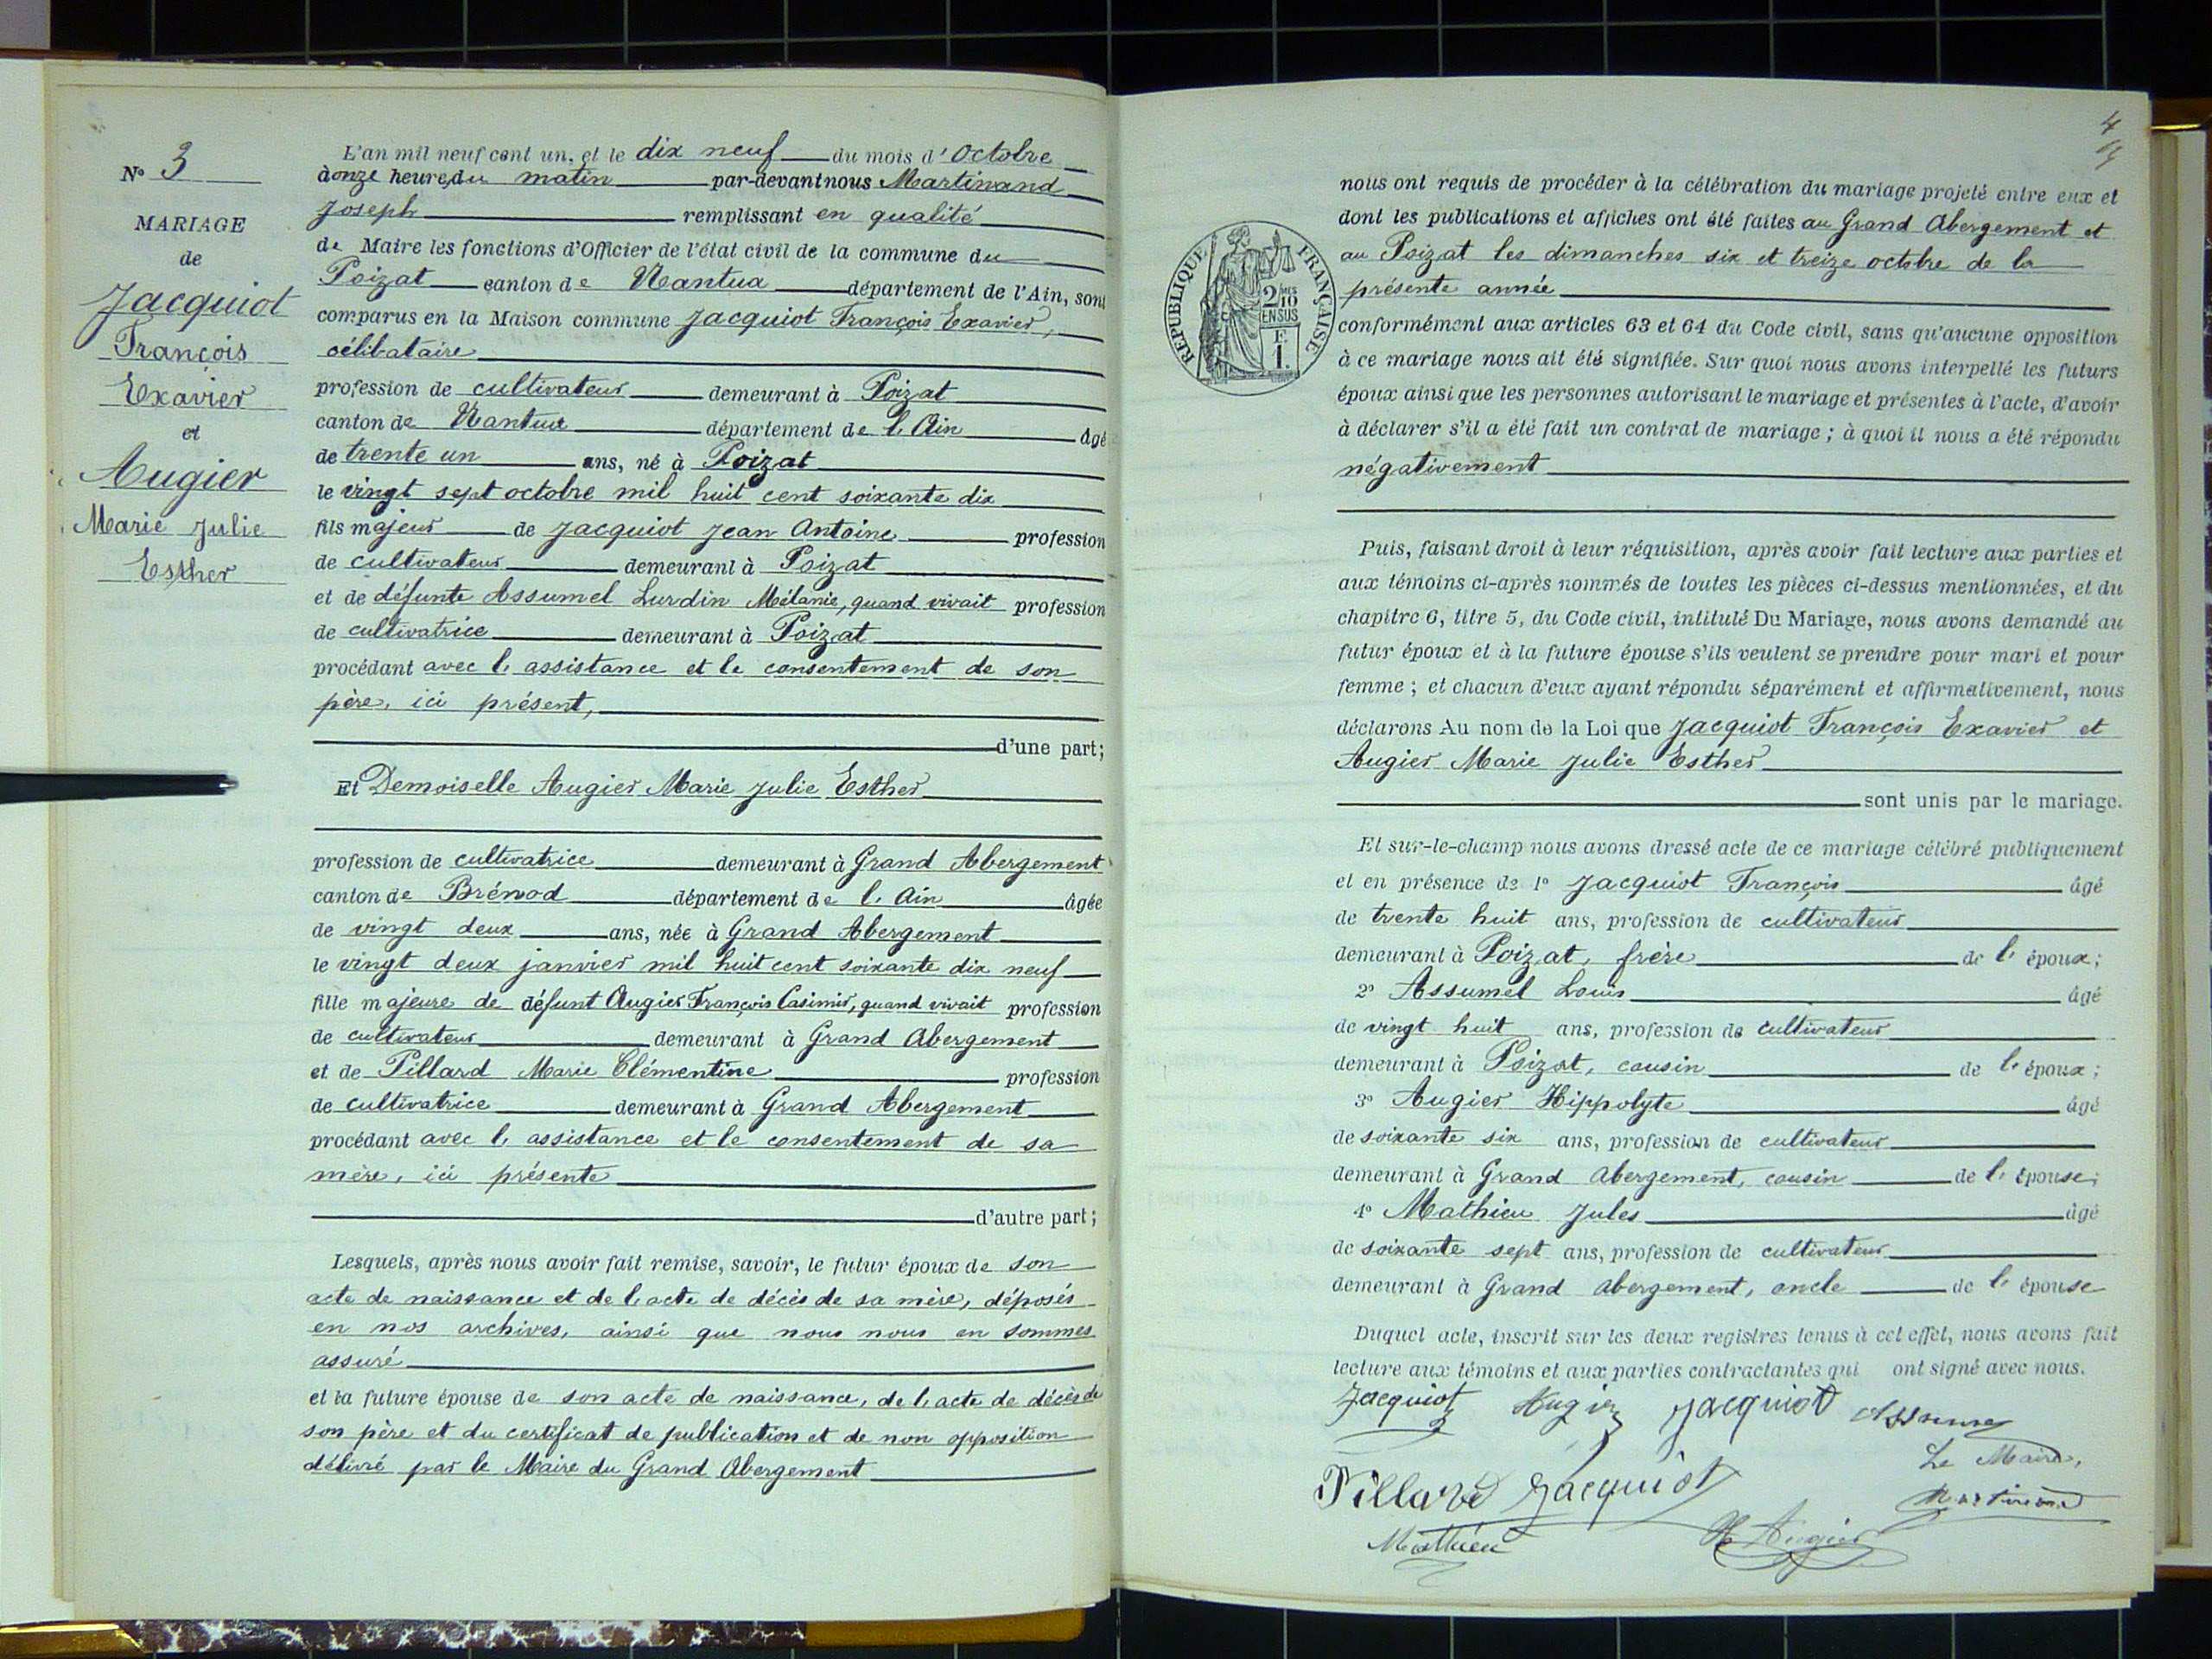 N° 3
MARIAGE
de
Jacquiot
François
Exavier
et
Augier
Marie Julie
Esther
L'an mil neuf cent un, et le dix neuf du mois d'Octobre
à onze heures du matin par-devant nous Martinand
Joseph remplissant en qualité
de Maire les fonctions d'Officier de l'état civil de la commune du
Poizat canton de Nantua département de l'Ain, sont
comparus en la Maison commune Jacquiot François Exavier,
célibataire
profession de cultivateur demeurant à Poizat
canton de Nantua département de l'Ain âgé
de trente un ans, né à Poizat
le vingt sept octobre mil huit cent soixante dix
fils majeur de Jacquiot Jean Antoine profession
de cultivateur demeurant à Poizat
et de défunte Assumel Lurdin Mélanie, quand vivait profession
de cultivatrice demeurant à Poizat
procédant avec l'assistance et le consentement de son
père, ici présent,
d'une part;
Et Demoiselle Augier Marie Julie Esther
profession de cultivatrice demeurant à Grand Abergement
canton de Brénod département de l'Ain âgée
de vingt deux ans, née à Grand Abergement
le vingt deux janvier mil huit cent soixante dix neuf
fille majeure de défunt Augier François Casimir, quand vivait profession
de cultivateur demeurant à Grand Abergement
et de Pillard Marie Clémentine profession
de cultivatrice demeurant à Grand Abergement
procédant avec l'assistance et le consentement de sa
mère, ici présente
d'autre part;
Lesquels, après nous avoir fait remise, savoir, le futur époux de son
acte de naissance et de l'acte de décès de sa mère, déposés
en nos archives, ainsi que nous nous en sommes
assuré
et la future épouse de son acte de naissance, de l'acte de décès de
son père et du certificat de publication et de non opposition
délivré par le Maire du Grand Abergement
4
RÉPUBLIQUE FRANÇAISE
2/10
EN SUS
F.
1.
nous ont requis de procéder à la célébration du mariage projeté entre eux et
dont les publications et affiches ont été faites au Grand Abergement et
au Poizat les dimanches six et treize octobre de la
présente année
conformément aux articles 63 et 64 du Code civil, sans qu'aucune opposition
à ce mariage nous ait été signifiée. Sur quoi nous avons interpellé les futurs
époux ainsi que les personnes autorisant le mariage et présentes à l'acte, d'avoir
à déclarer s'il a été fait un contrat de mariage; à quoi il nous a été répondu
négativement
Puis, faisant droit à leur réquisition, après avoir fait lecture aux parties et
aux témoins ci-après nommés de toutes les pièces ci-dessus mentionnées, et du
chapitre 6, titre 5, du Code civil, intitulé Du Mariage, nous avons demandé au
futur époux et à la future épouse s'ils veulent se prendre pour mari et pour
femme; et chacun d'eux ayant répondu séparément et affirmativement, nous
déclarons Au nom de la Loi que Jacquiot François Exavier et
Augier Marie Julie Esther
sont unis par le mariage.
Et sur-le-champ nous avons dressé acte de ce mariage célébré publiquement
et en présence de 1° Jacquiot François âgé
de trente huit ans, profession de cultivateur
demeurant à Poizat, frère de l'époux;
2° Assumel Louis âgé
de vingt huit ans, profession de cultivateur
demeurant à Poizat, cousin de l'époux;
3° Augier Hippolyte âgé
de soixante six ans, profession de cultivateur
demeurant à Grand Abergement, cousin de l'épouse;
4° Mathieu Jules âgé
de soixante sept ans, profession de cultivateur
demeurant à Grand Abergement, oncle de l'épouse
Duquel acte, inscrit sur les deux registres tenus à cet effet, nous avons fait
lecture aux témoins et aux parties contractantes qui ont signé avec nous.
Jacquiot Augier Jacquiot Assumel
Le Maire,
Pillard Jacquiot Martinand
Mathieu H Augier